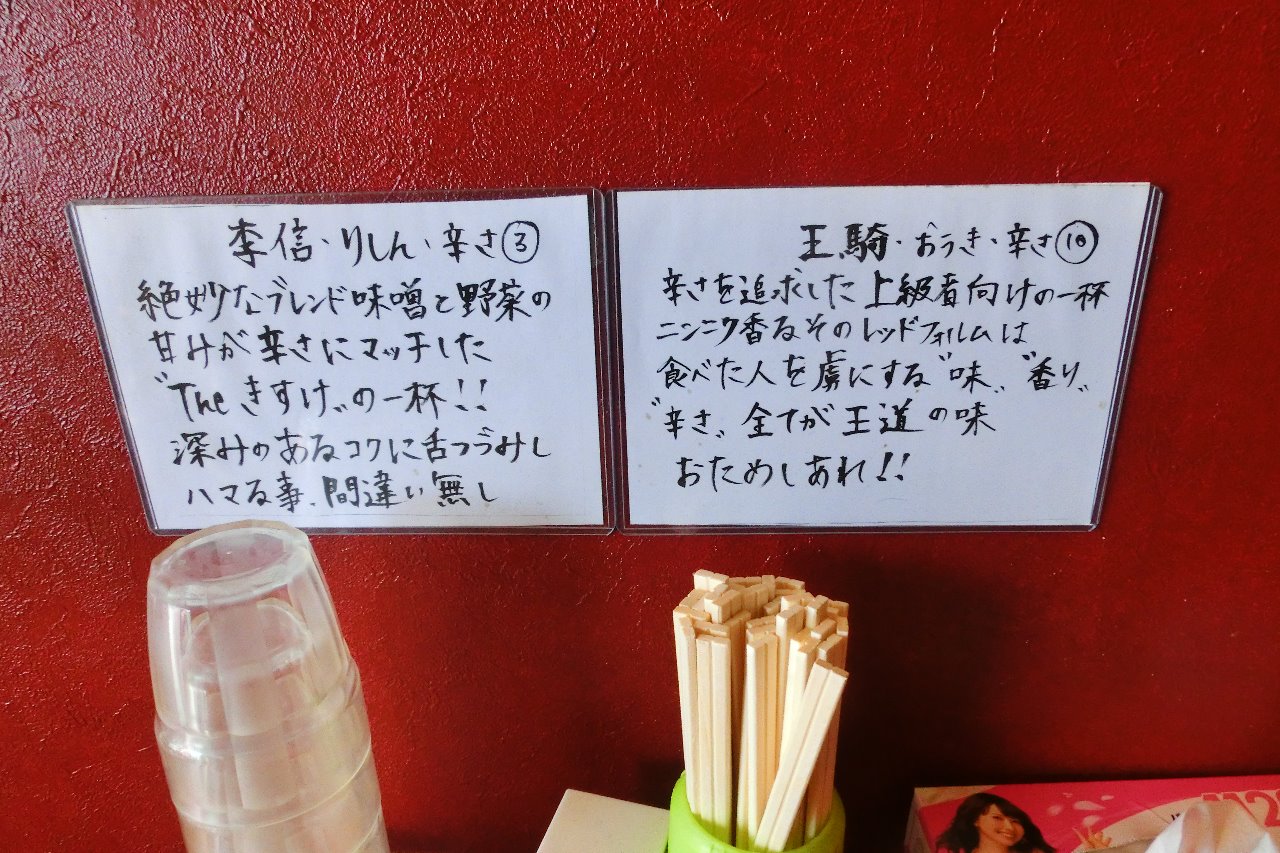 李信・りしん・辛さ③
絶妙なブレンド味噌と野菜の
甘みが辛さにマッチした
"Theきすけ"の一杯!!
深みのあるコクに舌つづみし
ハマる事、間違い無し
王騎・おうき・辛さ⑩
辛さを追求した上級者向けの一杯
ニンニク香るそのレッドフォルムは
食べた人を虜にする"味"、"香り"
"辛さ"全てが王道の味
おためしあれ!!